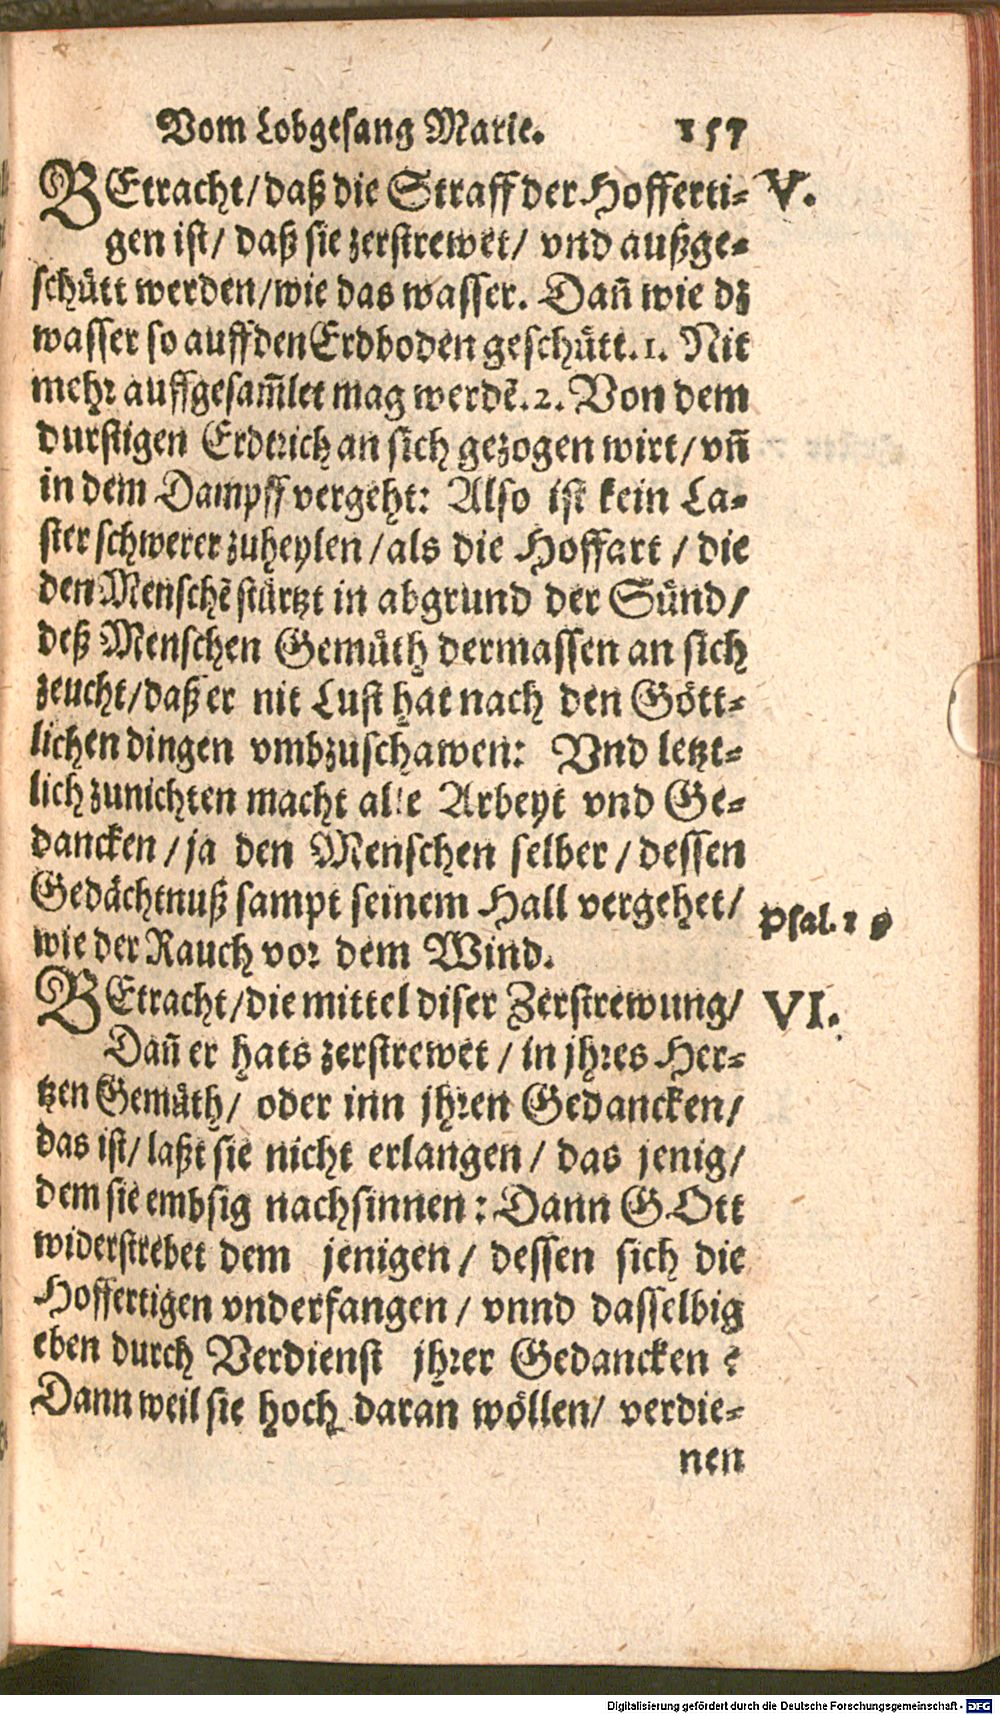 Vom Lobgesang Marie. 157
BEtracht/daß die Straff der Hofferti- V.
gen ist/ daß sie zerstrewet/ vnd außge-
schütt werden/wie das wasser. Dañ wie dz
wasser so auff den Erdboden geschütt. 1. Nit
mehr auffgesam̃let mag werdẽ. 2. Von dem
durstigen Erdtrich an sich gezogen wirt/ vñ
in dem Dampff vergeht: Also ist kein La-
ster schwerer zuheylen/als die Hoffart/ die
den Menschẽ stürtzt in abgrund der Sünd/
deß Menschen Gemüth dermassen an sich
zeucht/daß er nit Lust hat nach den Gött-
lichen dingen vmbzuschawen: Vnd letzt-
lich zunichten macht alle Arbeyt vnd Ge-
dancken/ja den Menschen selber/dessen
Gedächtnuß sampt seinem Hall vergehet/
wie der Rauch vor dem Wind. Psal. 1
BEtracht/die mittel diser Zerstrewung/ VI.
Dañ er hats zerstrewet/ in jhres Her-
tzen Gemüth/ oder inn jhren Gedancken/
das ist/ laßt sie nicht erlangen/ das jenig/
dem sie embsig nachsinnen: Dann GOtt
widerstrebet dem jenigen/ dessen sich die
Hoffertigen vnderfangen/ vnnd dasselbig
eben durch Verdienst jhrer Gedancken:
Dann weil sie hoch daran wöllen/ verdie-
nen
Digitalisierung gefördert durch die Deutsche Forschungsgemeinschaft - DFG